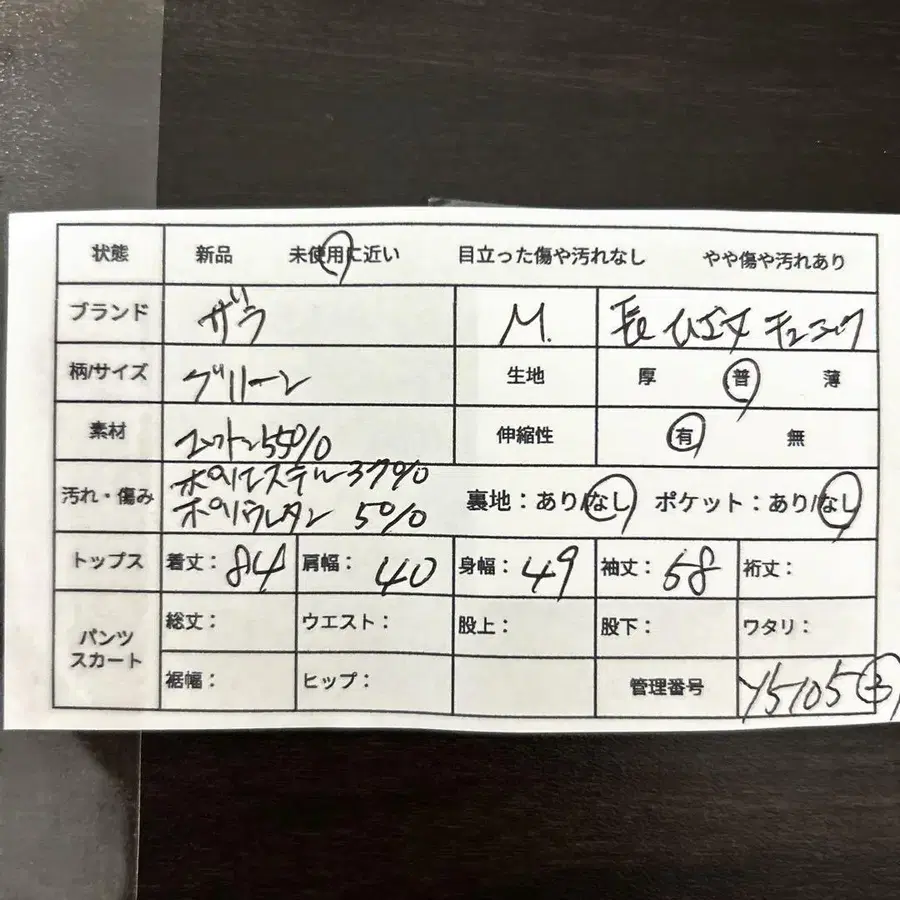 状態 新品 未使用に近い 目立った傷や汚れなし やや傷や汚れあり
ブランド ザラ M. 長
柄/サイズ グリーン 生地 厚 普 薄
素材 コットン55% 伸縮性 有 無
ポリエステル37%
汚れ・傷み 裏地：あり/なし ポケット：あり/なし
ポリウレタン 5%
トップス 着丈：84 肩幅：40 身幅：49 袖丈：58 裄丈：
パンツ
スカート
総丈： ウエスト： 股上： 股下： ワタリ：
裾幅： ヒップ： 管理番号 Y5105